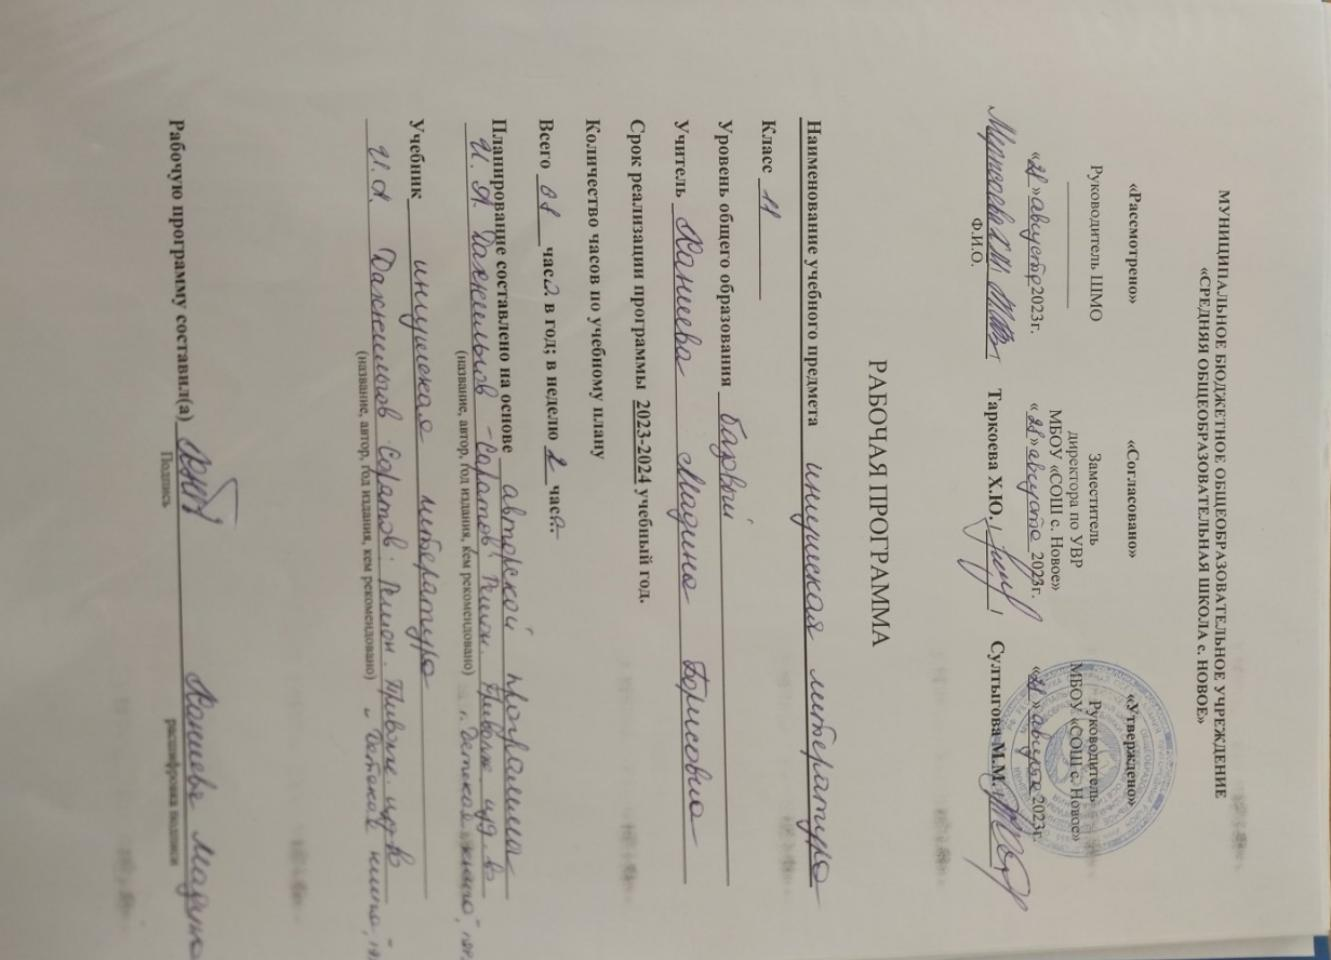 МУНИЦИПАЛЬНОЕ БЮДЖЕТНОЕ ОБЩЕОБРАЗОВАТЕЛЬНОЕ УЧРЕЖДЕНИЕ
«СРЕДНЯЯ ОБЩЕОБРАЗОВАТЕЛЬНАЯ ШКОЛА с. НОВОЕ»
«Рассмотрено»
Руководитель ШМО
«28» августа 2023г.
Ф.И.О.
«Согласовано»
Заместитель
директора по УВР
МБОУ «СОШ с. Новое»
«28» августа 2023г.
Таркоева Х.Ю./
«Утверждено»
Руководитель
МБОУ «СОШ с. Новое»
«28» августа 2023г.
Султыгова М.М.
РАБОЧАЯ ПРОГРАММА
Наименование учебного предмета ингушская литература
Класс 11
Уровень общего образования базовый
Учитель Ханиева Мадина Борисовна
Срок реализации программы 2023-2024 учебный год.
Количество часов по учебному плану
Всего 68 часа в год; в неделю 2 час
Планирование составлено на основе авторской программы
И. А. Дахкильгов - Саратов: Регион. Приволж изд. в
(название, автор, год издания, кем рекомендовано) "Детская книга",
Учебник ингушская литература
И.А. Дахкильгов Саратов: Регион. Приволж изд-во
(название, автор, год издания, кем рекомендовано) "Детская книга",
Рабочую программу составил(а) Ханиева Мадина
Подпись расшифровка подписи